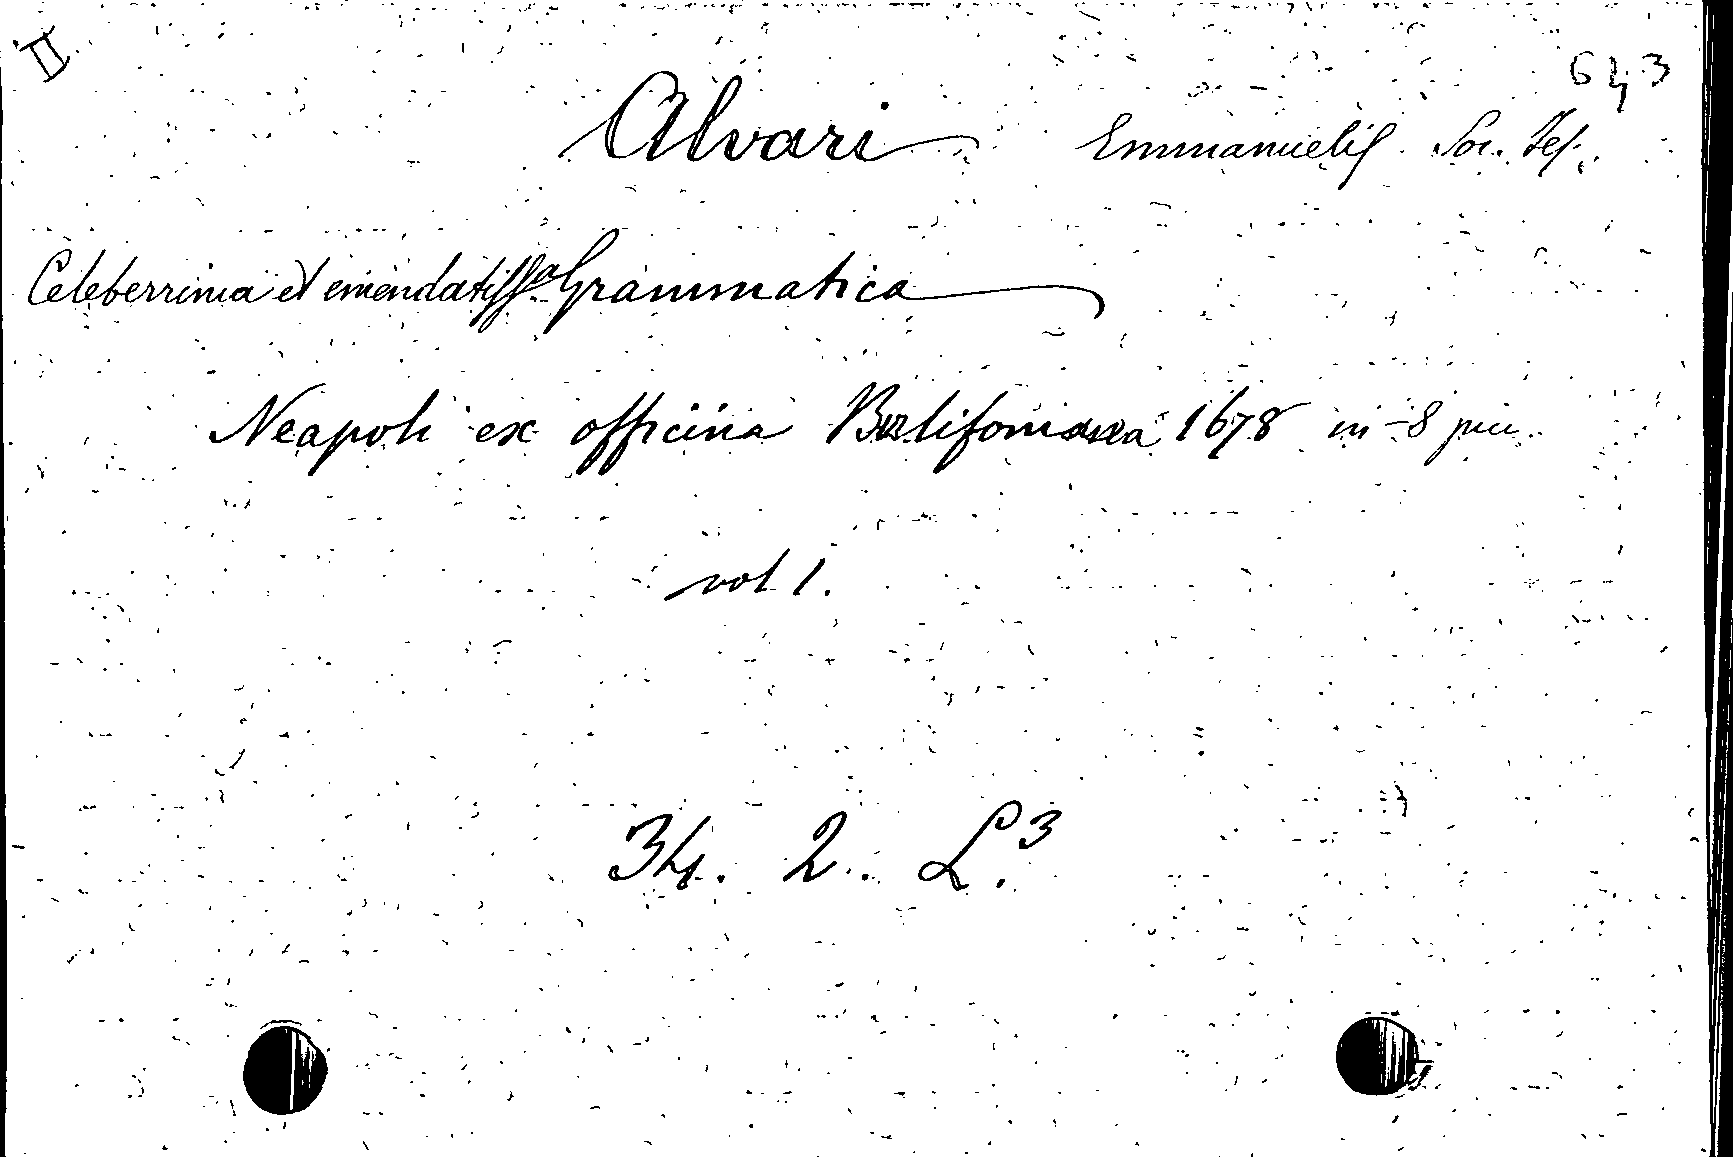 II
643
Alvari Emmanuelis Soc. Jes.
Celeberrima et emendatissa Grammatica
Neapoli ex officina 1678 in-8 picc.
vol 1.
34. 2. L.3